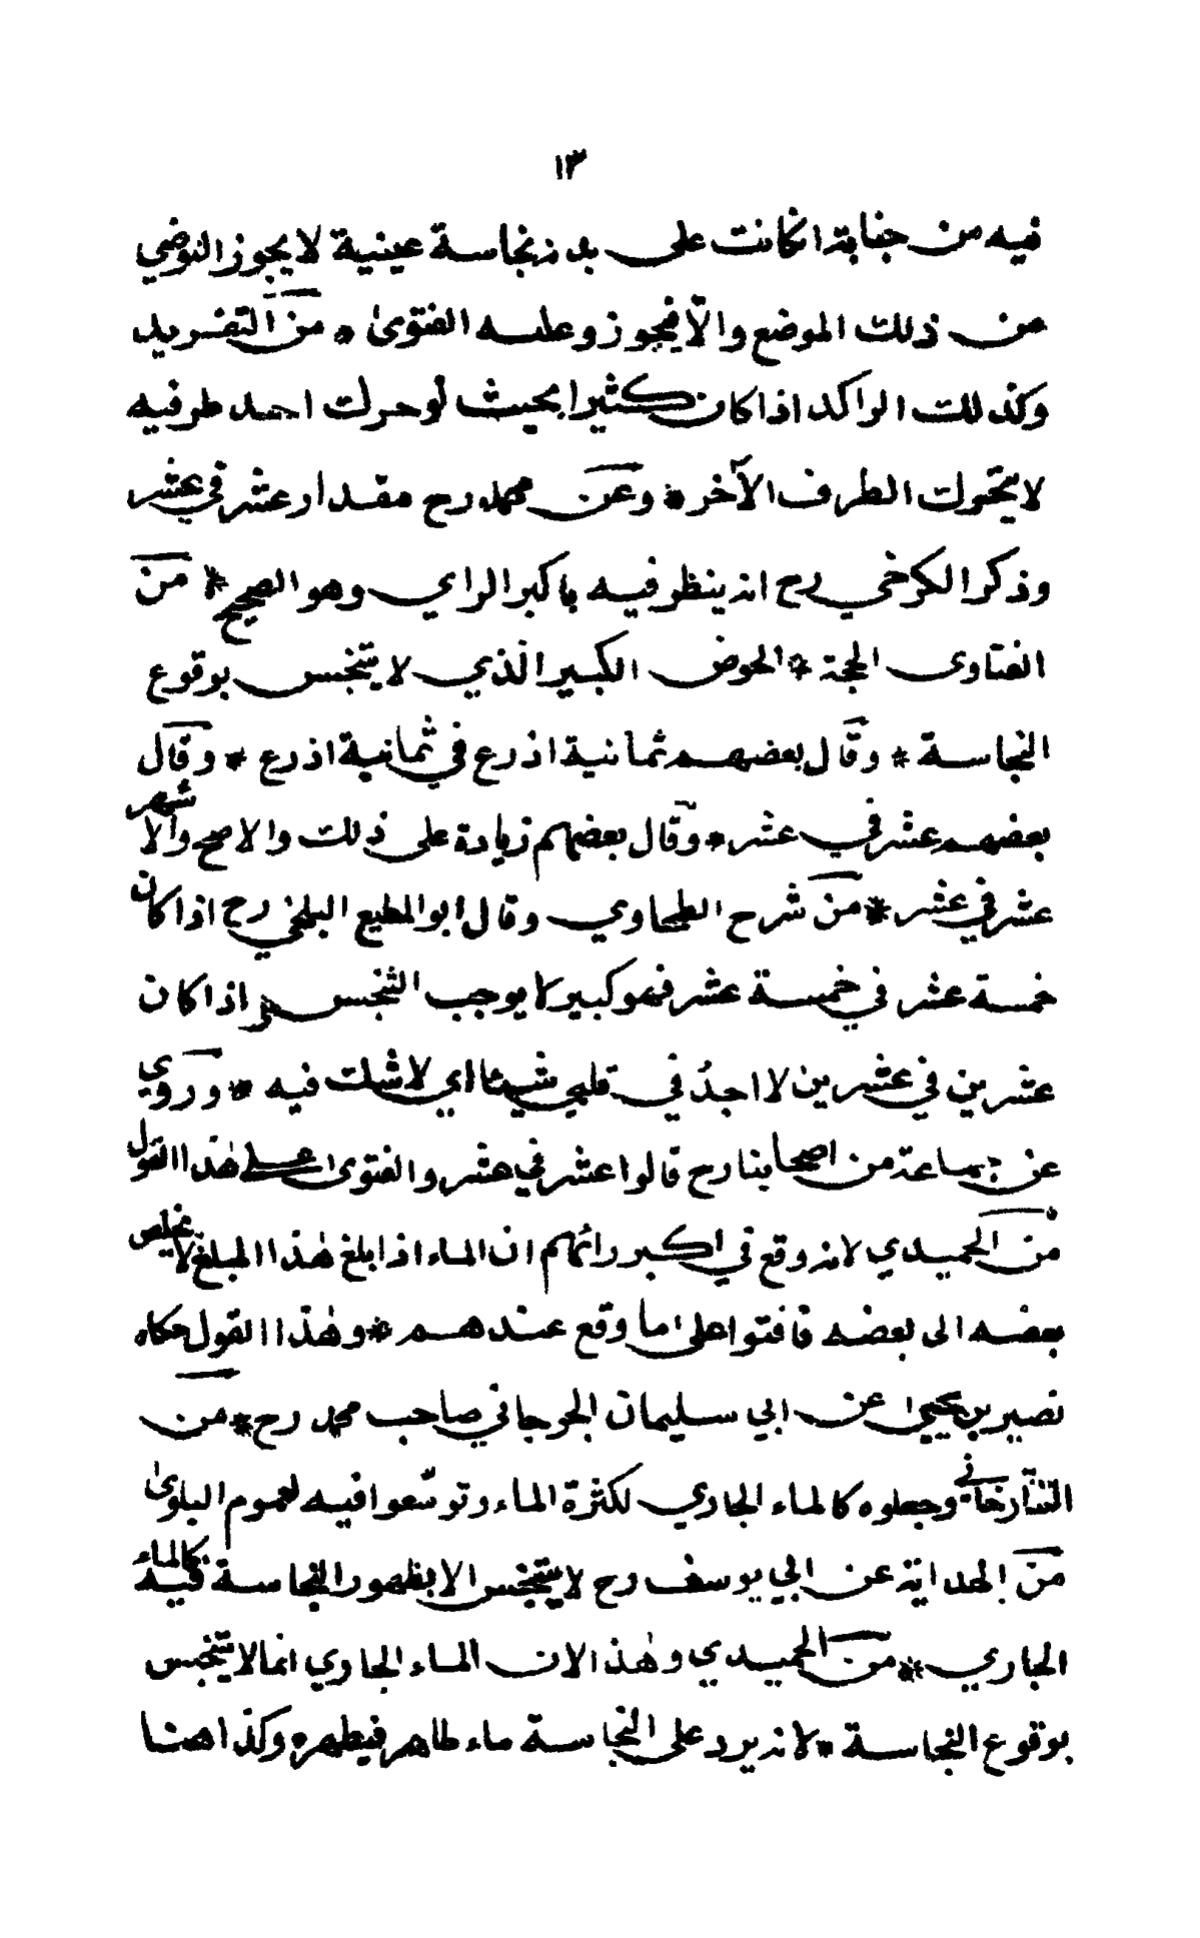 ١٣
فيه من جنابة انكانت على بدنه نجاسة عينية لا يجوز التوضي
من ذلك الموضع والّا فيجوز وعليه الفتوىٰ * من التفريد
وكذلك الراكد اذا كان كثيرا بحيث لو حرك احد طرفيه
لا يتحرك الطرف الآخر * وعن محمد رح مقدار عشر في عشر
وذكر الكرخي رح انه ينظر فيه باكبر الراي وهو الصحيح * من
الفتاوى الحجة * الحوض الكبير الّذي لا يتنجس بوقوع
النجاسة * وقال بعضهم ثمانية اذرع في ثمانية اذرع * وقال
بعضهم عشر في عشر * وقال بعضهم زيادة على ذلك والاصح والاشهر
عشر في عشر * من شرح الطحاوي وقال ابو المطيع البلخي رح اذا كان
خمسة عشر في خمسة عشر فهو كبير لا يوجب التنجس واذا كان
عشرين في عشرين لا اجدُ في قلبي شيئا اي لا شك فيه * وروي
عن جماعة من اصحابنا رح قالوا عشر في عشر والفتوى على هٰذا القول
من الحميدي لانه وقع في اكبر رائهم ان الماء اذا بلغ هٰذا المبلغ لا يخلص
بعضه الى بعضه فافتوا على ما وقع عندهم * وهٰذا القول حكاه
نصير بن يحيىٰ عن ابي سليمان الجوجاني صاحب محمد رح * من
التتارخاني وجعلوه كالماء الجاري لكثرة الماء وتوسّعوا فيه لعموم البلوىٰ
من الهداية عن ابي يوسف رح لا يتنجس الا بظهور النجاسة فيه كالماء
الجاري * من الحميدي وهٰذا لان الماء الجاري انما لا يتنجس
بوقوع النجاسة * لانه يرد على النجاسة ماء طاهر فيطهره وكذا هنا